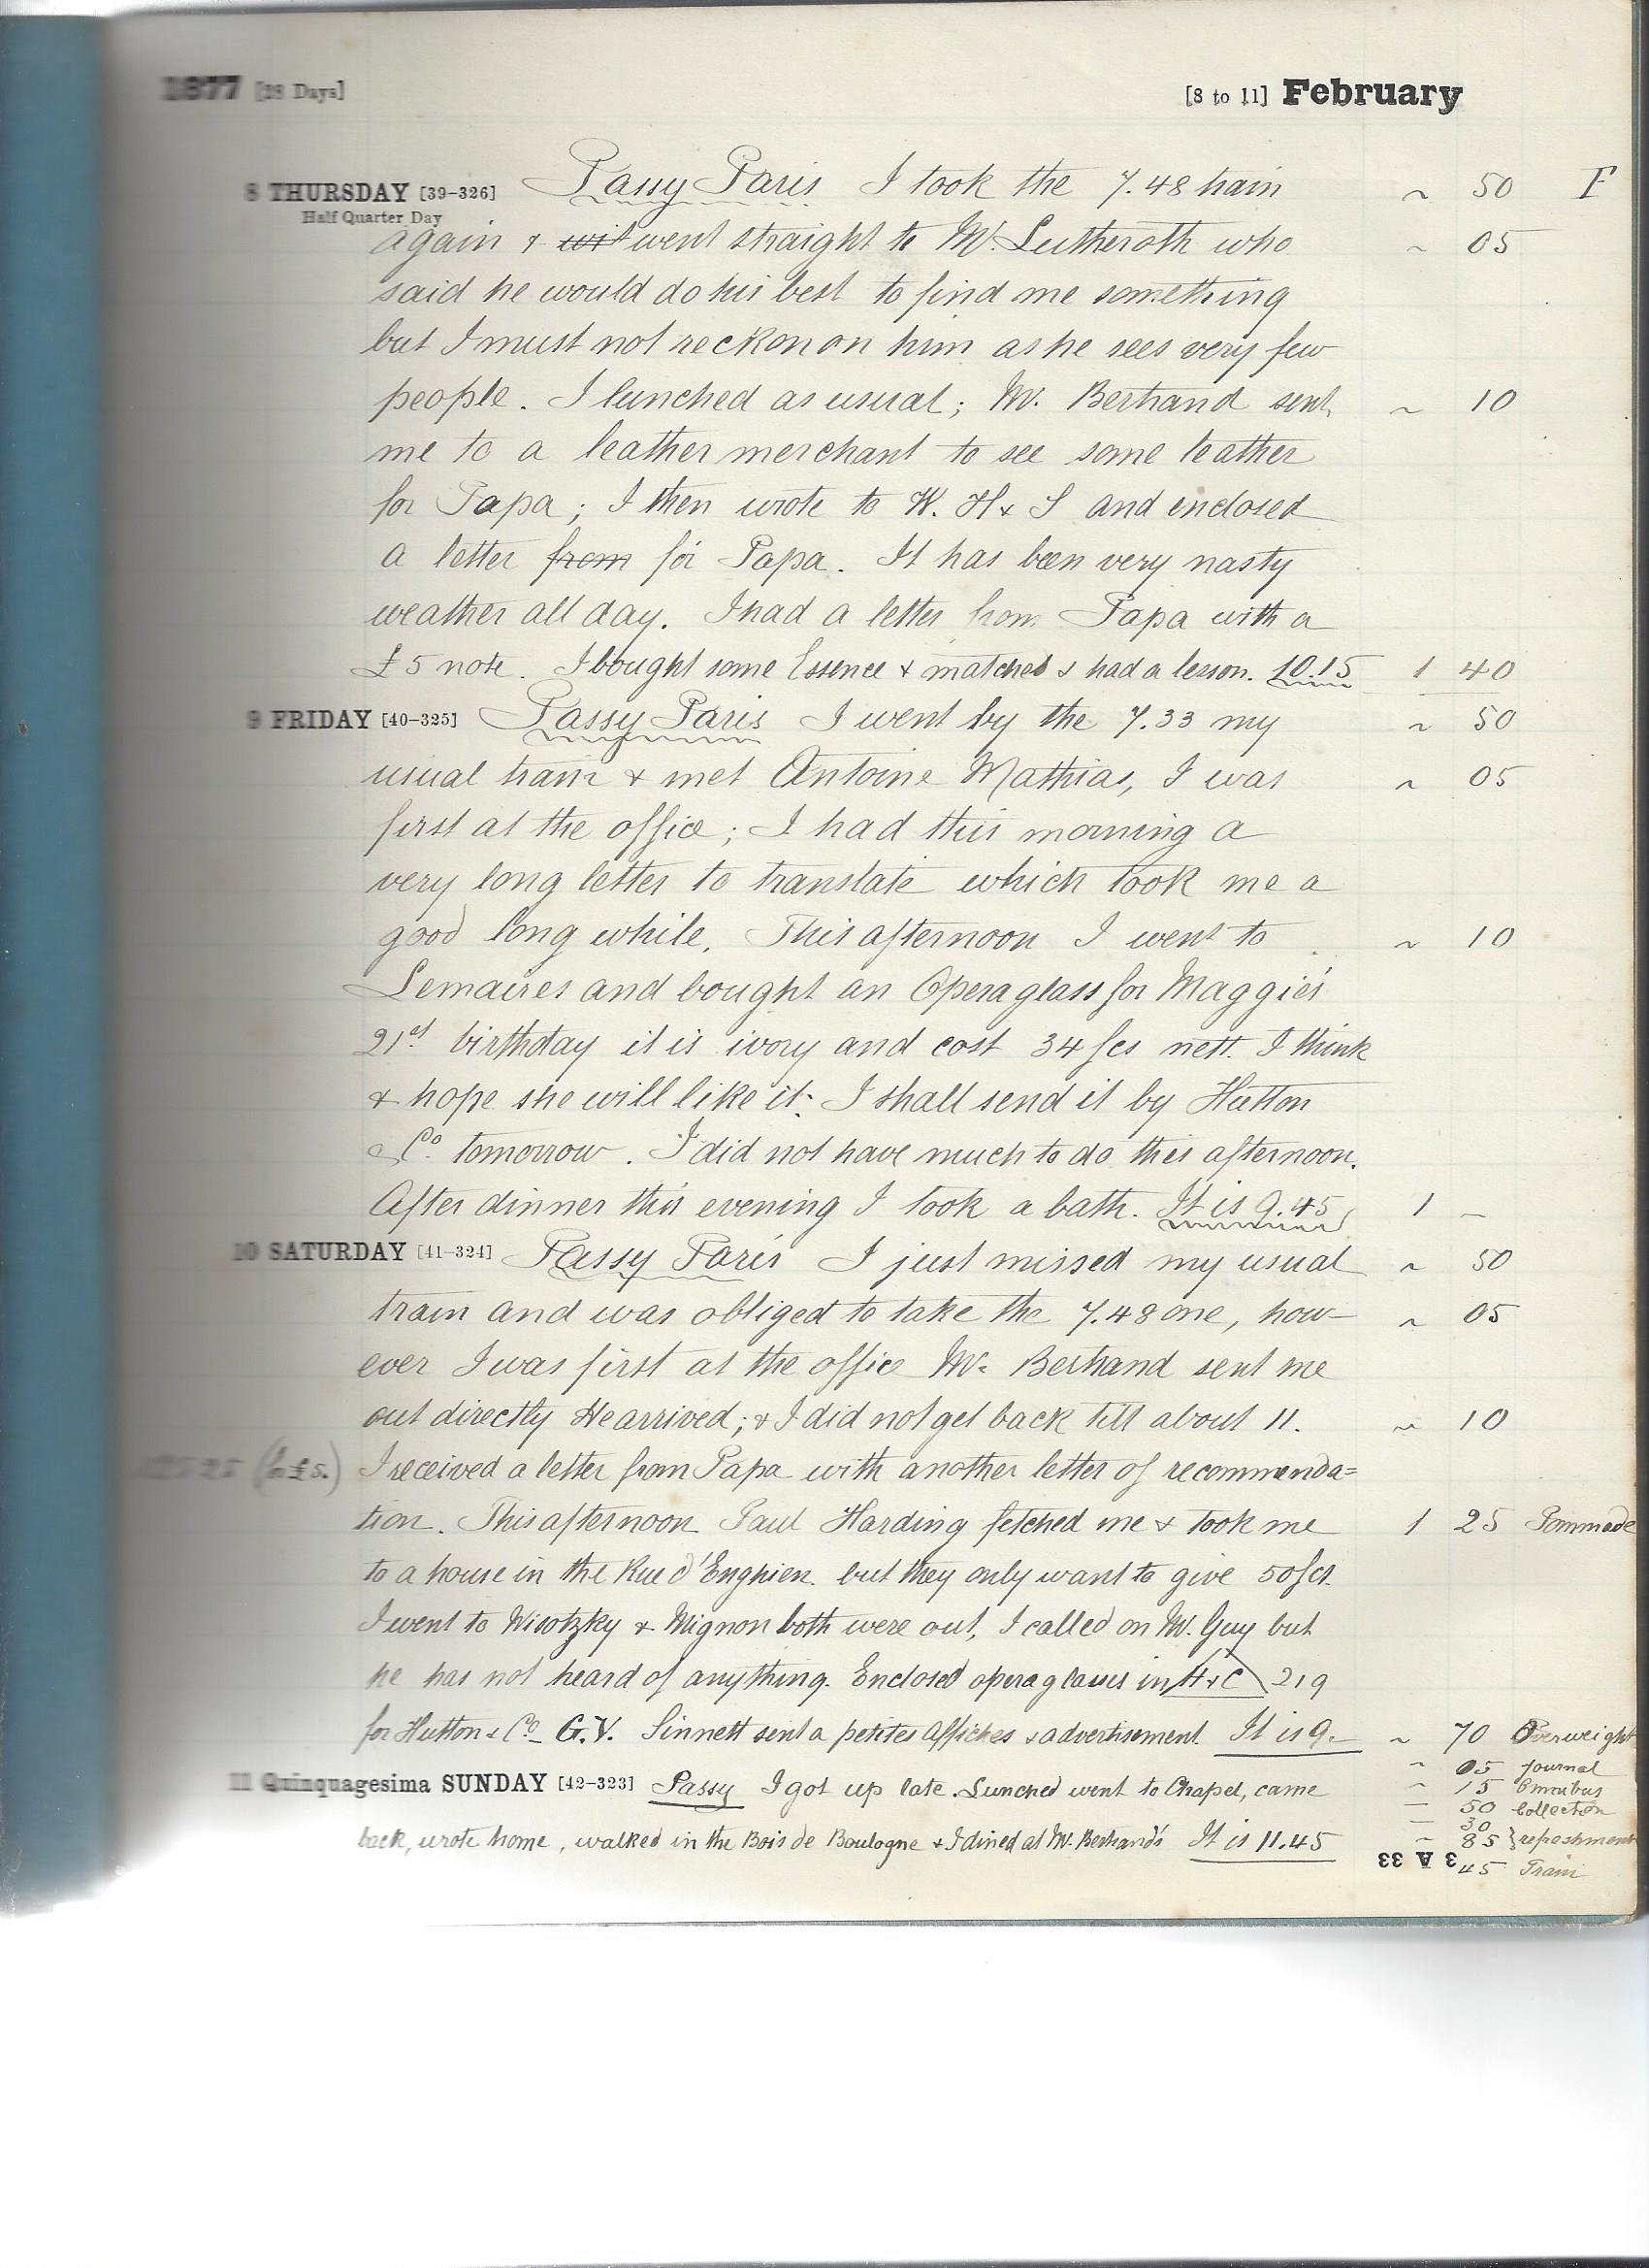 1877 [28 Days] [8 to 11] February
8 THURSDAY [39-326] Passy Paris I took the 7.48 train ~ 50 F
Half Quarter Day
again & went straight to Mr. Lutheroth who ~ 05
said he would do his best to find me something
but I must not reckon on him as he sees very few
people. I lunched as usual; Mr. Bertrand sent ~ 10
me to a leather merchant to see some leather
for Papa; I then wrote to W. H & S and enclosed
a letter from for Papa. It has been very nasty
weather all day. I had a letter from Papa with a
£5 note. I bought some Essence & matches & had a lesson. 10.15 1 40
9 FRIDAY [40-325] Passy Paris I went by the 7.33 my ~ 50
usual train & met Antoine Mathias, I was ~ 05
first at the office; I had this morning a
very long letter to translate which took me a
good long while. This afternoon I went to ~ 10
Lemaires and bought an Opera glass for Maggie's
21st birthday it is ivory and cost 34 fcs nett. I think
& hope she will like it: I shall send it by Hutton
& Co. tomorrow. I did not have much to do this afternoon.
After dinner this evening I took a bath. It is 9.45 1 –
10 SATURDAY [41-324] Passy Paris I just missed my usual ~ 50
train and was obliged to take the 7.48 one, how- ~ 05
ever I was first at the office Mr. Bertrand sent me
out directly He arrived; & I did not get back till about 11. ~ 10
25 (in £s.) I received a letter from Papa with another letter of recommenda=
tion. This afternoon Paul Harding fetched me & took me 1 25 Pommade
to a house in the Rue d'Enghien. but they only want to give 50 fcs.
I went to Wisotzky & Mignon both were out, I called on Mr. Guy but
he has not heard of anything. Enclosed opera glasses in H&C 219
for Hutton & Co. G.V. Sinnett sent a petites Affiches & advertisement. It is 9. ~ 70 Overweight
~ 05 Journal
11 Quinquagesima SUNDAY [42-323] Passy I got up late. Lunched went to Chapel, came ~ 15 Omnibus
– 50 Collection
– 30
back, wrote home, walked in the Bois de Boulogne & I dined at Mr. Bertrand's It is 11.45 ~ 85 } refreshment
33 A 3 45 Train